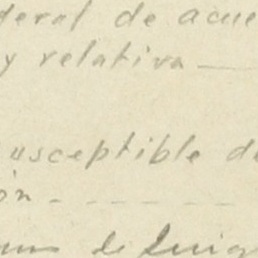 deral de acue
y relativa —
usceptible de
ón - - - - -
de